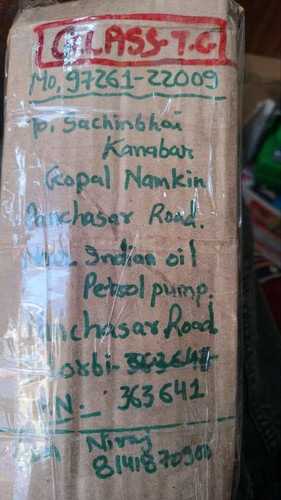 GLASS-T.G
Mo. 97261-22009
To. Sachinbhai
Kanabar
Gopal Namkin
Panchasar Road.
Near Indian oil
Petrol pump.
Panchasar Road
Morbi-363641
PIN:- 363641
Niraj